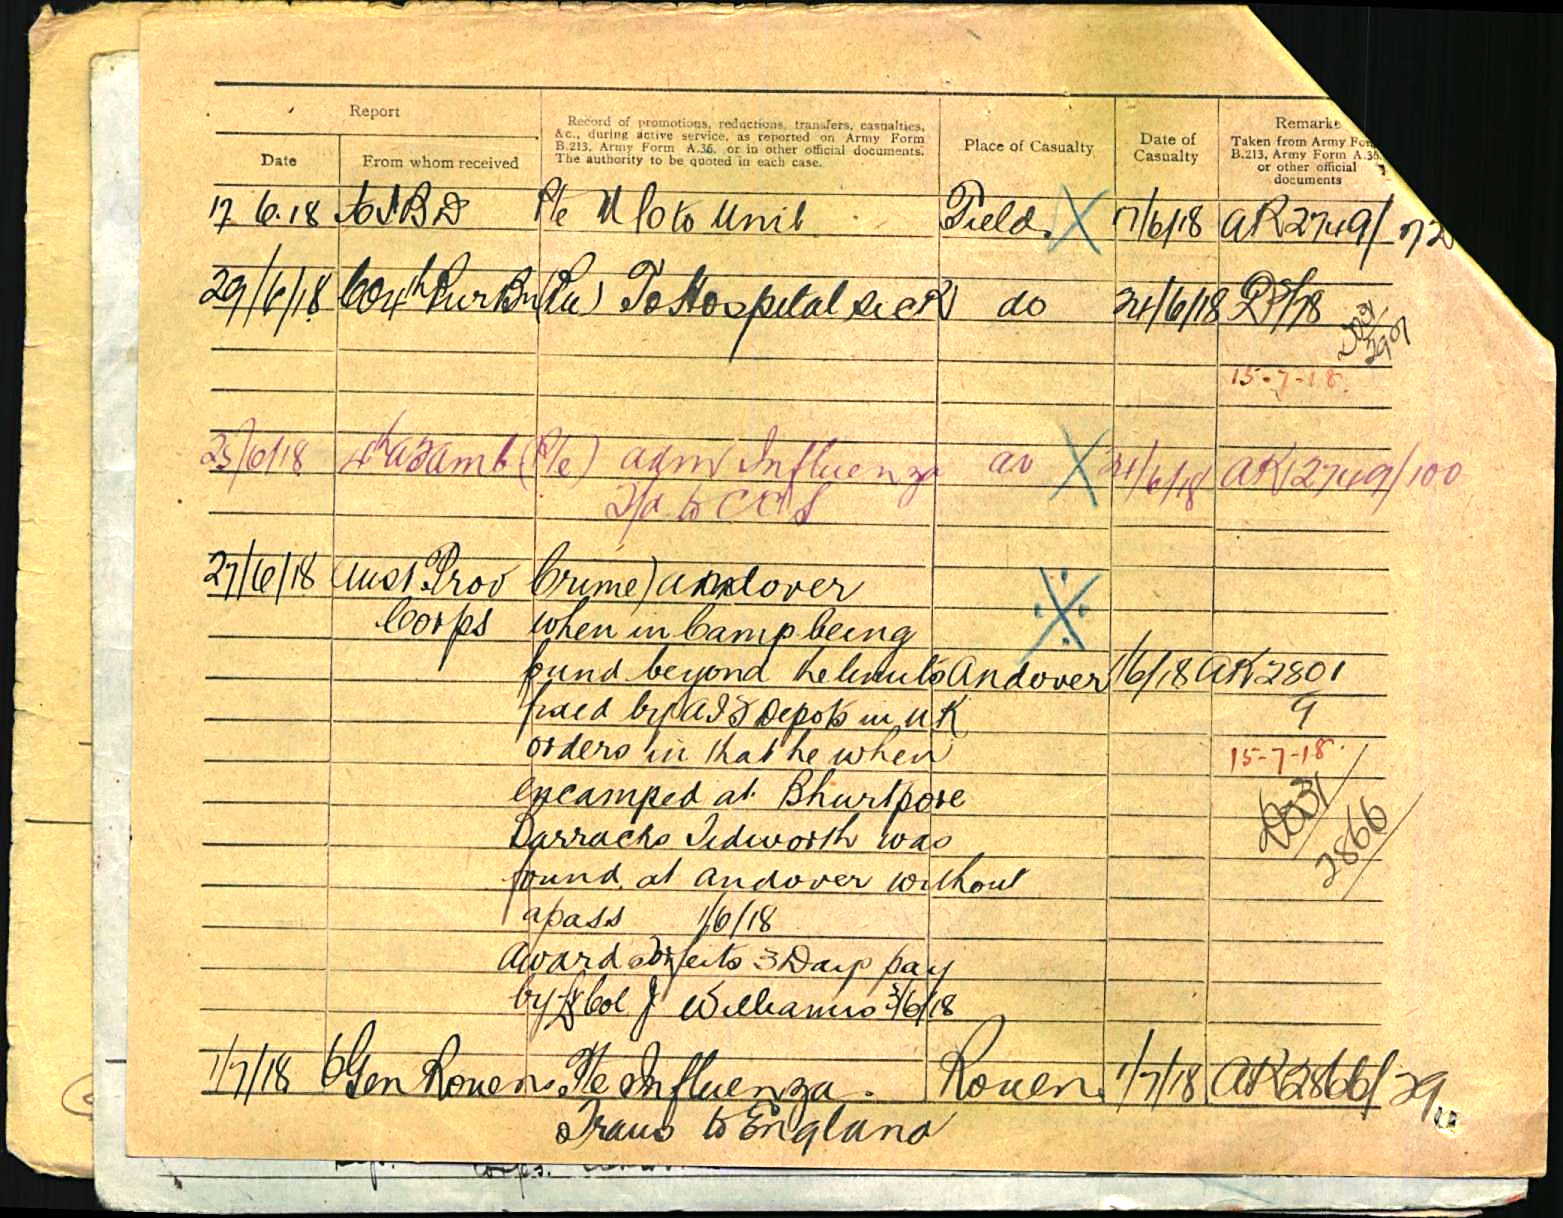 Report
Record of promotions, reductions, transfers, casualties,
&c., during active service, as reported on Army Form
B.213, Army Form A.36, or in other official documents.
The authority to be quoted in each case.
Place of Casualty
Date of
Casualty
Remarks
Taken from Army For
B.213, Army Form A.36,
or other official
documents
Date
From whom received
17.6.18 AIBD Pte to Unit Field. 17/6/18 AK2749/72
29/6/18 Co 4th Pnr Bn (Pte) To Hospital Sick do 24/6/18
15-7-18.
25/6/18 4th (Pte) adm Influenza do 24/6/18 AK2749/100
to CCS
27/6/18 Aust Prov Crime) Andover
Corps when in Camp being
found beyond the limits Andover 1/6/18 AK2801
fixed by AIF Depots in UK 9
orders in that he when 15-7-18.
encamped at Bhurtpore
Barracks Tidworth was 2831
found at Andover without 2866
a pass 1/6/18
Award forfeits 3 Days pay
by Lt Col J Williams 3/6/18
1/7/18 6 Gen Rouen. Pte Influenza. Rouen. 1/7/18 AK2866/29
Trans to England
Corps.